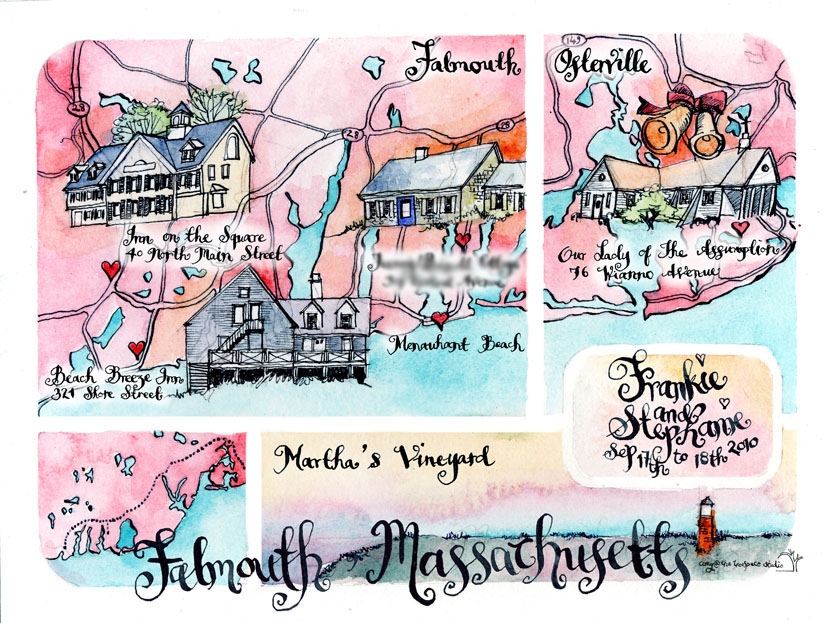 Falmouth
Osterville
149
28
28
28
Inn on the Square
40 North Main Street
Our Lady of The Assumption
76 Wianno Avenue
Menauhant Beach
Beach Breeze Inn
321 Shore Street
Frankie
and
Stephanie
Sep 17th to 18th 2010
Martha's Vineyard
Falmouth Massachusetts